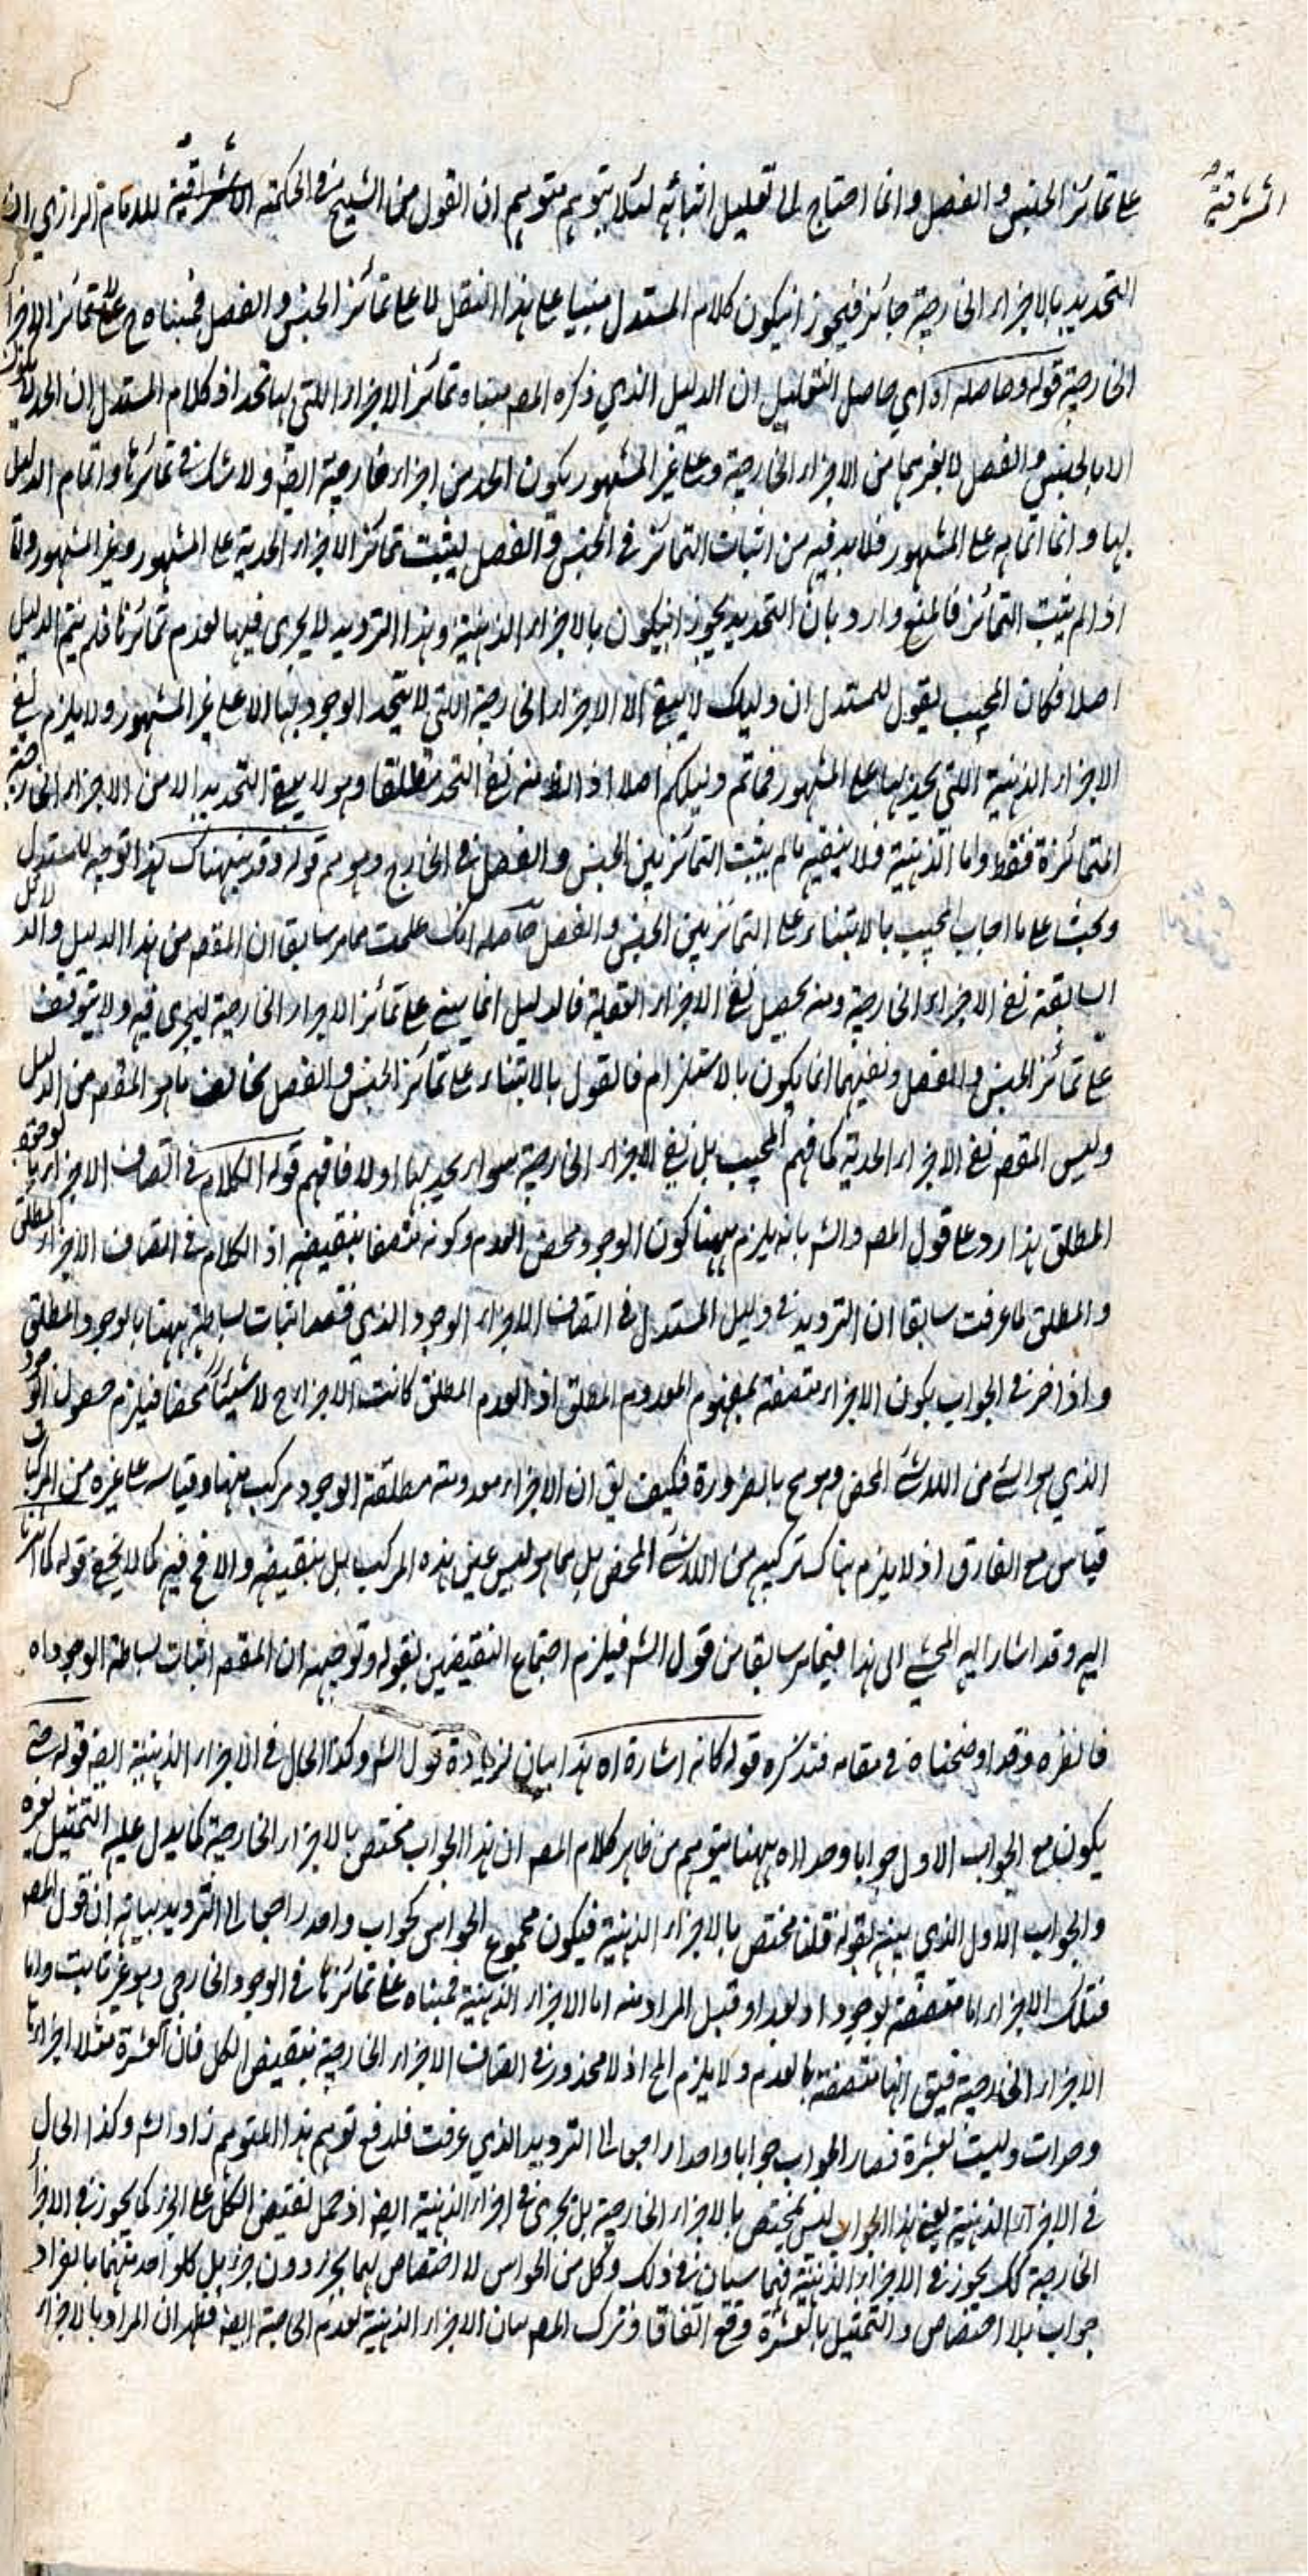 على تمائز الجنس والفصل وانما احتاج الى تعليل اثباته لئلا يتوهم متوهم ان القول من الشيخ في الحكمة الاشراقية للامام الرازي ان
المشرقية
التحديد بالاجزاء الخارجية جائز فيجوز انيكون كلام المستدل مبنيا على هذا النقل لا على تمائز الجنس والفصل فمبناه ح على تمائز الاجزاء
الخارجية قوله وحاصله اه اي حاصل التعليل ان الدليل الذي ذكره المص مبناه تمائز الاجزاء اللتى بها تحد اذ كلام المستدل ان الحد لا يكون
الا بالجنس والفصل لا بغيرهما من الاجزاء الخارجية وعلى غير المشهور يكون الحد من اجزاء خارجية ايضا ولا شك في تمائزها واتمام الدليل
بها وانما اتمامه على المشهور فلا بد فيه من اثبات التمائز في الجنس والفصل ليثبت تمائز الاجزاء الحدية على المشهور وغير المشهور واما
اذا لم يثبت التمائز فالمنع وارد بان التحديد يجوز انيكون بالاجزاء الذهنية وهذا الترديد لا يجرى فيها لعدم تمائزها فلم يتم الدليل
اصلا فكان المجيب يقول للمستدل ان دليلك لا ينفى الا الاجزاء الخارجية اللتى لا يتحد الوجود بها الا على غير المشهور ولا يلزم نفى
الاجزاء الذهنية اللتى يحد بها على المشهور فما تم دليلكم اصلا اذ الظ منه نفى التحد مطلقا وهو لا ينفى التحديد الا من الاجزاء الخارجية
المتمائزة فقط واما الذهنية فلا ينفيه ما لم يثبت التمائز بين الجنس والفصل في الخارج وهو مم قوله وقد ينبهناك هذا توجيه للمستدل
وبحث على ما اجاب المجيب بالابتناء على التمائز بين الجنس والفصل حاصله انك علمت مما مر سابقا ان المقصم من هذا الدليل والدلائل
السابقة نفى الاجزاء الخارجية ومنه يحصل نفى الاجزاء العقلية فالدليل انما يبنى على تمائز الاجزاء الخارجية ليجرى فيه ولا يتوقف
على تمائز الجنس والفصل ونفيهما انما يكون بالاستلزام فالقول بالابتناء على تمائز الجنس والفصل مخالف ما هو المقصم من الدليل
وليس المقصم نفى الاجزاء الحدية كما فهم المجيب بل نفى الاجزاء الخارجية سواء يحد بها او لا فافهم قوله الكلام في اتصاف الاجزاء بالوجود
المطلق هذا رد على قول المص والشم بانه يلزم ههنا كون الوجود محض العدم وكونه متصفا بنقيضه اذ الكلام في اتصاف الاجزاء المطلق
والمطلق لما عرفت سابقا ان الترديد في دليل المستدل في اتصاف الاجزاء الوجود الذي فقصد اثبات بساطته ههنا بالوجود المطلق
واذا اختر في الجواب بكون الاجزاء متصفة بمفهوم المعدوم المطلق اذ العدم المطلق كانت الاجزاء ح لا شيئا محضا فيلزم حصول الوجود
الذي هو الشئ من اللاشئ المحض وهو مح بالضرورة فكيف يق ان الاجزاء معدومة مطلقة الوجود مركب منها وقياسه على غيره من المركبات
قياس مع الفارق اذ لا يلزم هناك تركيبه من اللاشئ المحض بل مما هو ليس عين هذه المركب بل بنقيضه ولا قح فيه كما لا يخفى قوله كما اشرنا
اليه وقد اشار اليه المحشى الى هذا فيما مر سابقا من قول الشم فيلزم اجتماع النقيضين بقوله وتوضيحه ان المقصم اثبات بساطة الوجود اه
فانظره وقد اوضحناه في مقامه فتذكره قوله كانه اشارة اه هذا بيان لزيادة قول الشم وكذا الحال في الاجزاء الذهنية ايضا قوله حتى
يكون مع الجواب الاول جوابا واحدا اه ههنا يتوهم من ظاهر كلام المص ان هذا الجواب مختص بالاجزاء الخارجية كما يدل عليه التمثيل بعشرة
والجواب الاول الذي بينه بقوله قلنا مختص بالاجزاء الذهنية فيكون مجموع الجوابين كجواب واحد راجعا الى الترديد بيانه ان قول المص
فتلك الاجزاء اما متصفة بوجود اه بعد او قبل المراد منه اما الاجزاء الذهنية فمبناه على تمائزها في الوجود الخارجي وهو غير ثابت واما
الاجزاء الخارجية فيق انها متصفة بالعدم ولا يلزم المح اذ لا محذور في اتصاف الاجزاء الخارجية بنقيض الكل فان العشرة مثلا اجزاءها
وحدات وليست بعشرة فصار الجواب جوابا واحدا راجعا الى الترديد الذي عرفت فلدفع توهم هذا المتوهم زاد الشم وكذا الحال
في الاجزاء الذهنية يعنى هذا الجواب ليس بمختص بالاجزاء الخارجية بل يجرى في اجزاء الذهنية ايضا اذ حمل نقيض الكل على الجزء كما يجوز في الاجزاء
الخارجية كك يجوز في الاجزاء الذهنية فهما سيان في ذلك وكل من الجوابين لا اختصاص لهما بجزء دون جزء بل كلواحد منهما بانفراد
جواب بلا اختصاص والتمثيل بالعشرة وقع اتفاقا وترك المص بيان الاجزاء الذهنية لعدم الحاجة ايضا فظهر ان المراد بالاجزاء